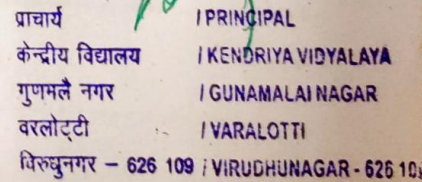 प्राचार्य / PRINCIPAL
केन्द्रीय विद्यालय / KENDRIYA VIDYALAYA
गुणमलै नगर / GUNAMALAI NAGAR
वरलोट्टी / VARALOTTI
विरुधुनगर – 626 109 / VIRUDHUNAGAR - 626 109